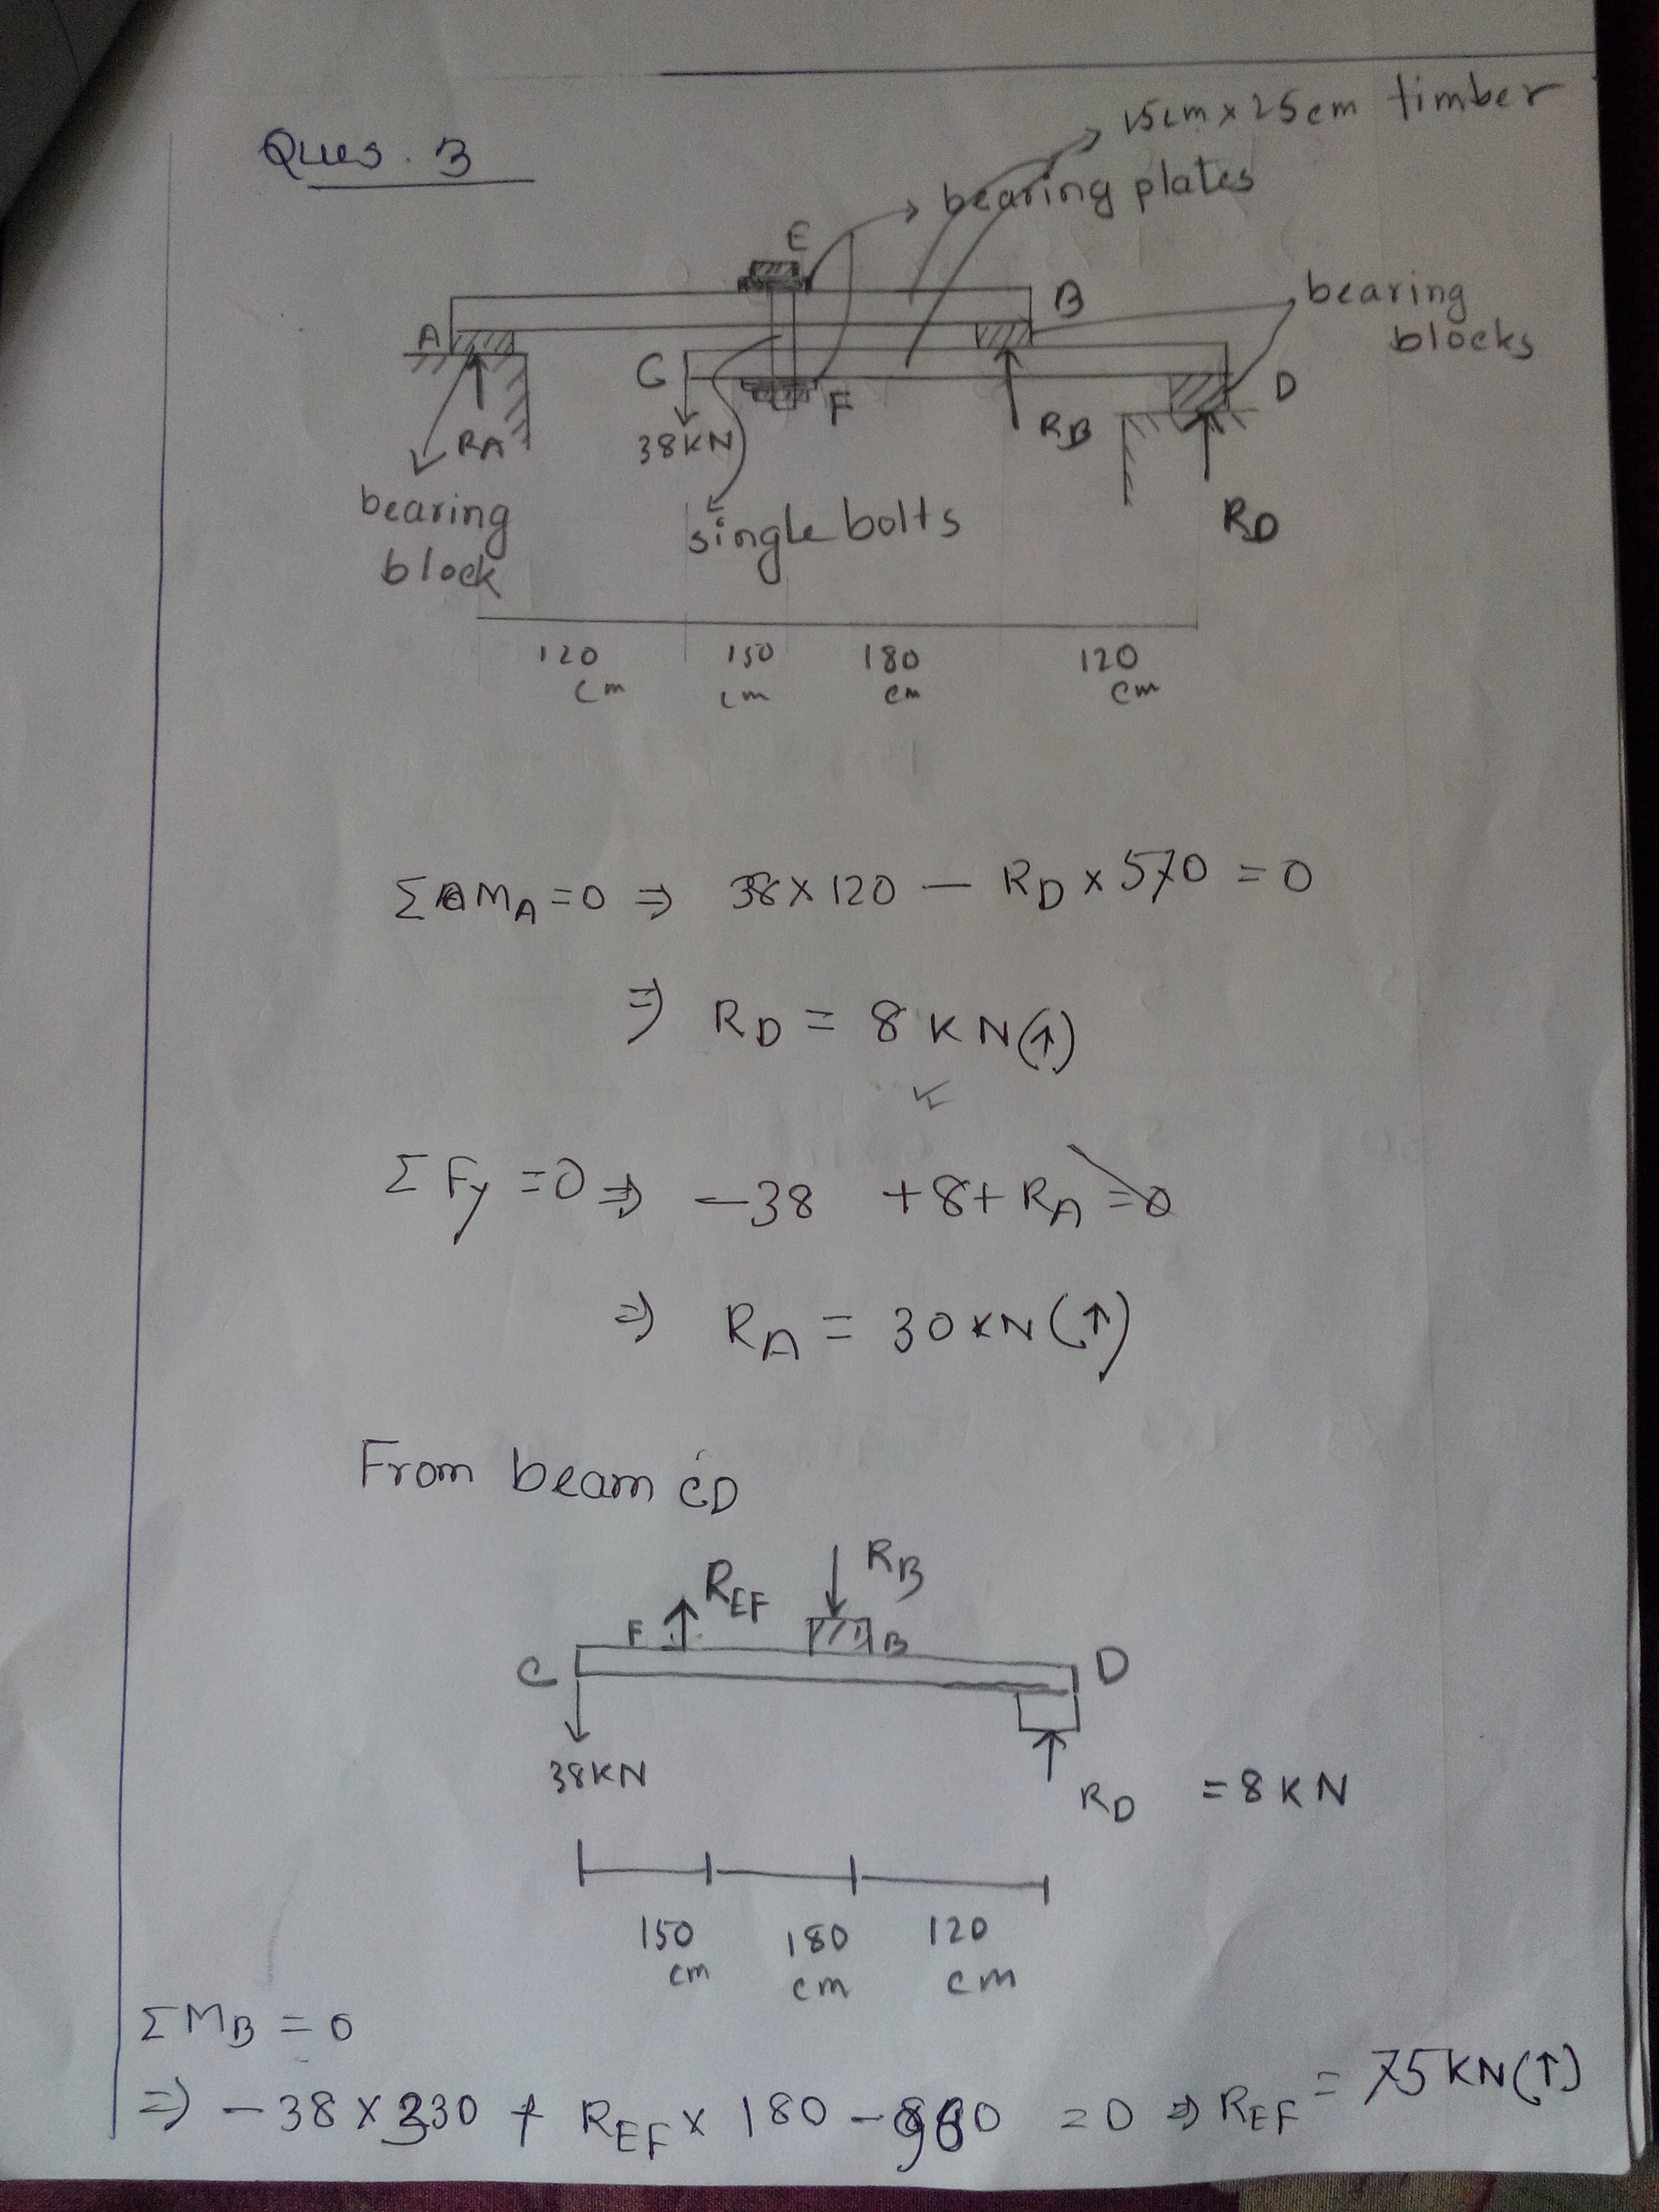 Ques. 3
15cm x 25cm timber
bearing plates
E
B
bearing blocks
A
C
F
D
RA
38KN
RB
RD
bearing block
single bolts
120 cm
150 cm
180 cm
120 cm
ΣMA = 0 ⇒ 38 x 120 — RD x 570 = 0
⇒ RD = 8 KN(↑)
ΣFy = 0 ⇒ -38 +8+ RA = 0
⇒ RA = 30 KN (↑)
From beam CD
REF
RB
F
B
C
D
38KN
RD = 8 KN
150 cm
180 cm
120 cm
ΣMB = 0
⇒ -38 x 330 + REF x 180 - 960 = 0 ⇒ REF = 75 KN(↑)